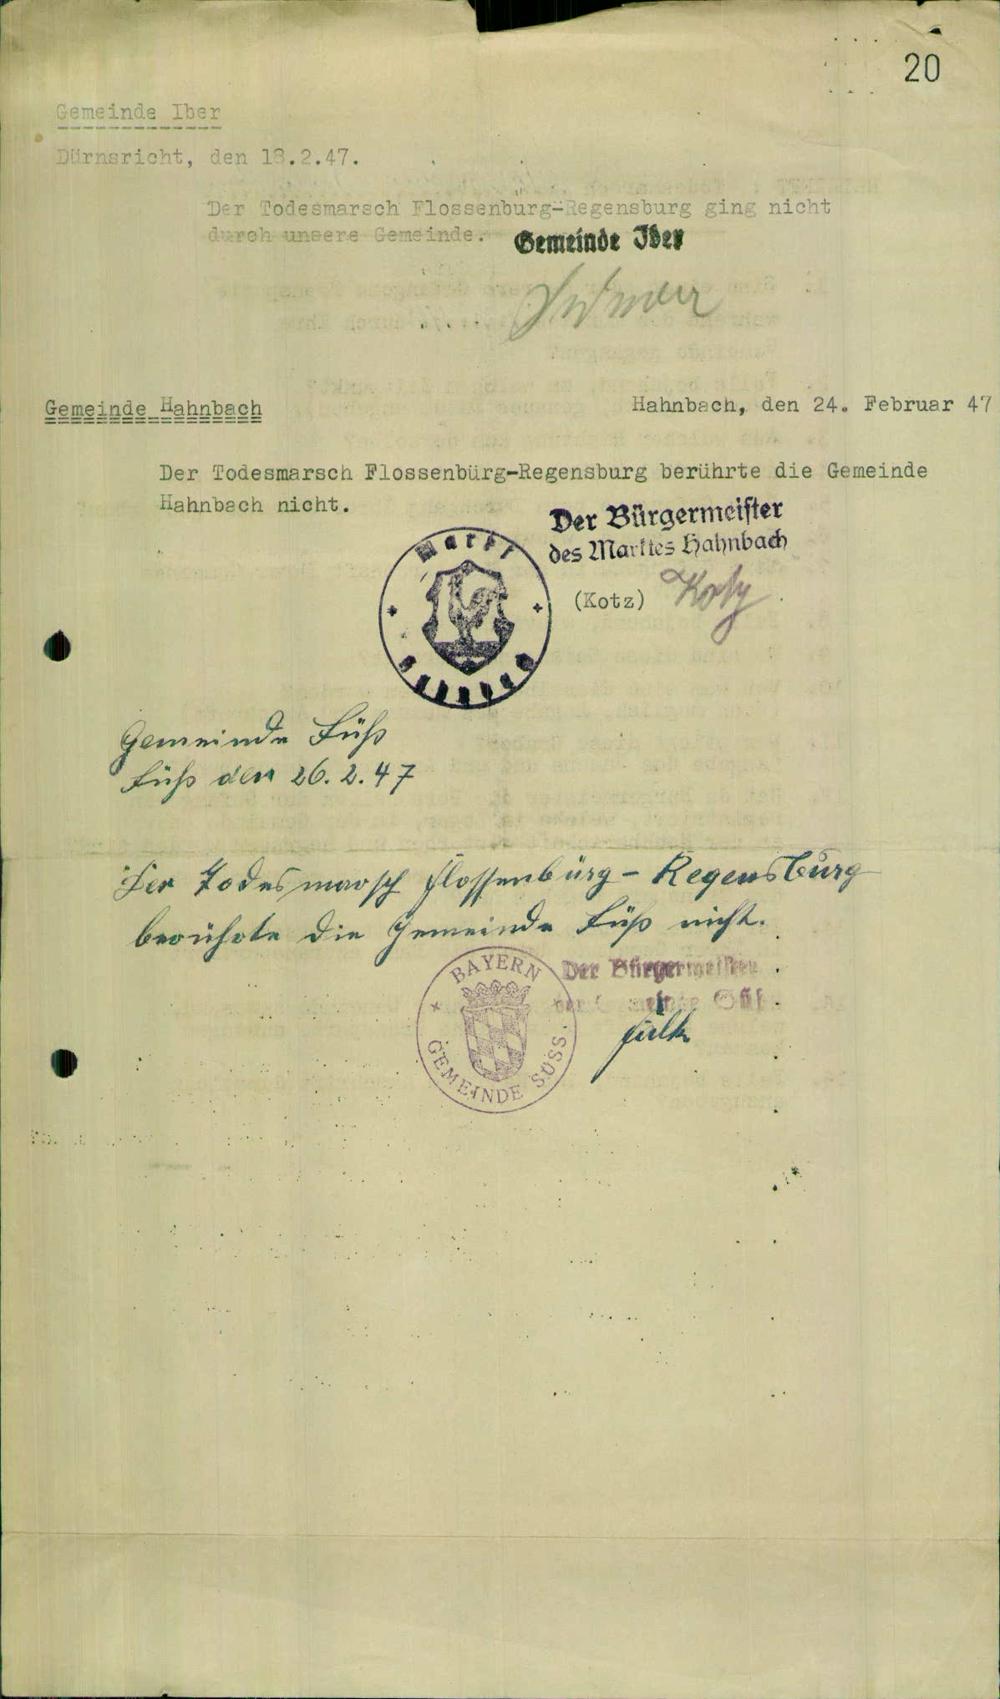 20
Gemeinde Iber
Dürnsricht, den 18.2.47.
Der Todesmarsch Flossenbürg-Regensburg ging nicht
durch unsere Gemeinde.
Gemeinde Iber
Gemeinde Hahnbach
Hahnbach, den 24. Februar 47
Der Todesmarsch Flossenbürg-Regensburg berührte die Gemeinde
Hahnbach nicht.
Der Bürgermeister
des Marktes Hahnbach
(Kotz) Kotz
Markt
Hahnbach
Gemeinde Süß
Süß den 26.2.47
Der Todesmarsch Flossenbürg - Regensburg
berührte die Gemeinde Süß nicht.
Der Bürgermeister
der Gemeinde Süß
BAYERN
GEMEINDE SÜSS.